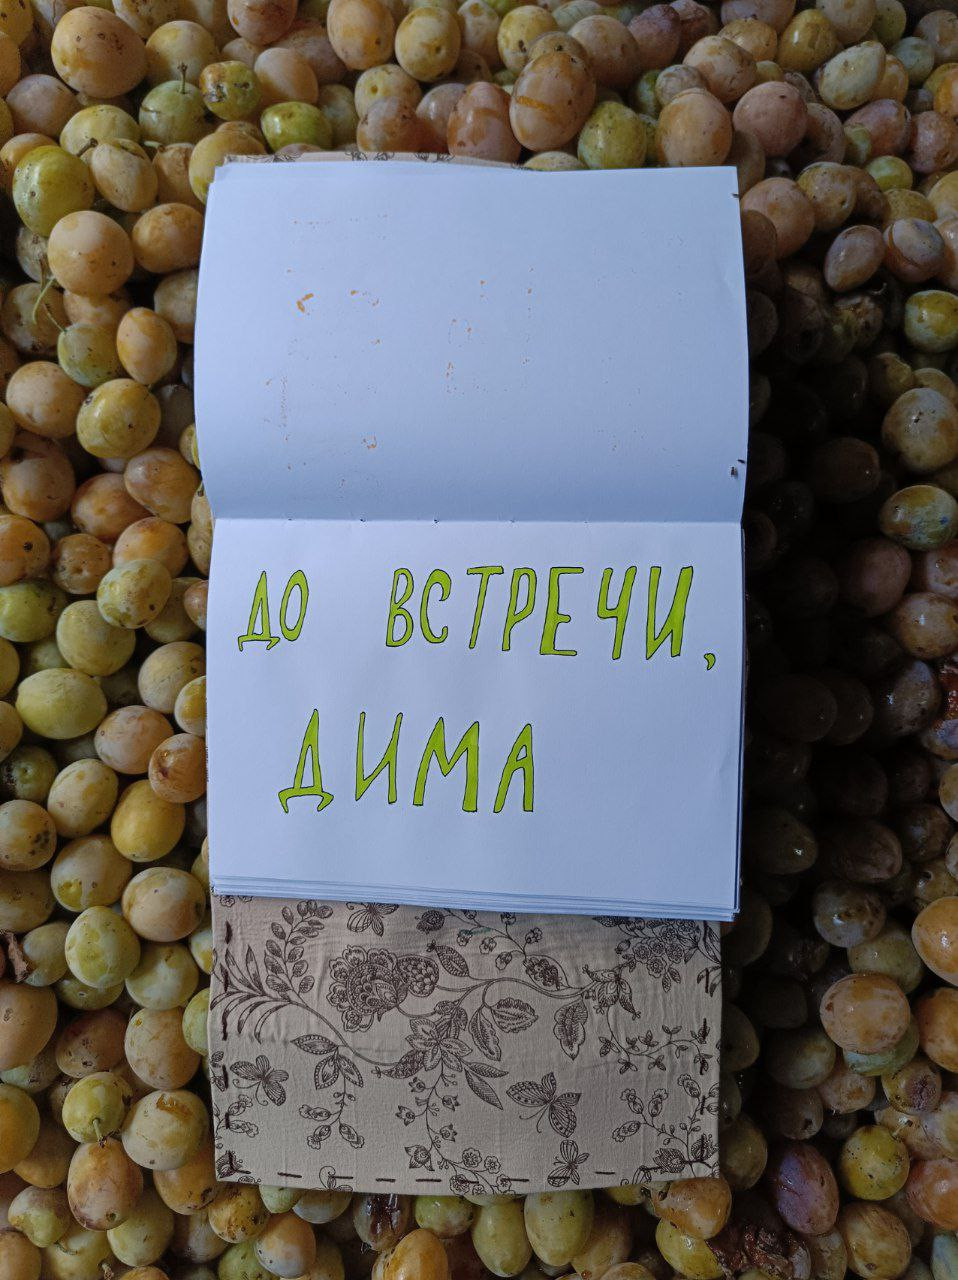 ДО ВСТРЕЧИ,
ДИМА